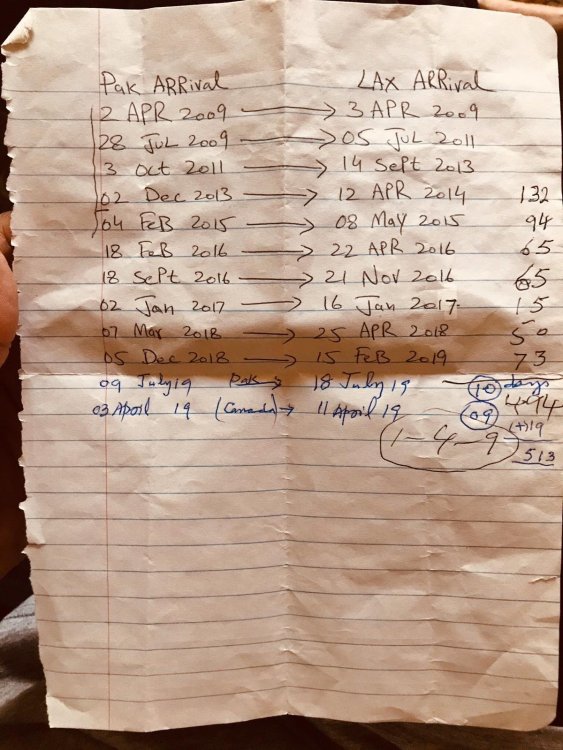 Pak ARRival LAX ARRival
2 APR 2009 → 3 APR 2009
28 JUL 2009 → 05 JUL 2011
3 Oct 2011 → 14 Sept 2013
02 Dec 2013 → 12 APR 2014 132
04 FeB 2015 → 08 May 2015 94
18 FeB 2016 → 22 APR 2016 65
18 SePt 2016 → 21 Nov 2016 65
02 Jan 2017 → 16 Jan 2017 15
07 Mar 2018 → 25 APR 2018 50
05 Dec 2018 → 15 FeB 2019 73
09 July 19 Pak → 18 July 19 — 10 days
03 April 19 (Canada) → 11 April 19 09
494
(+)19
1-4-9
513